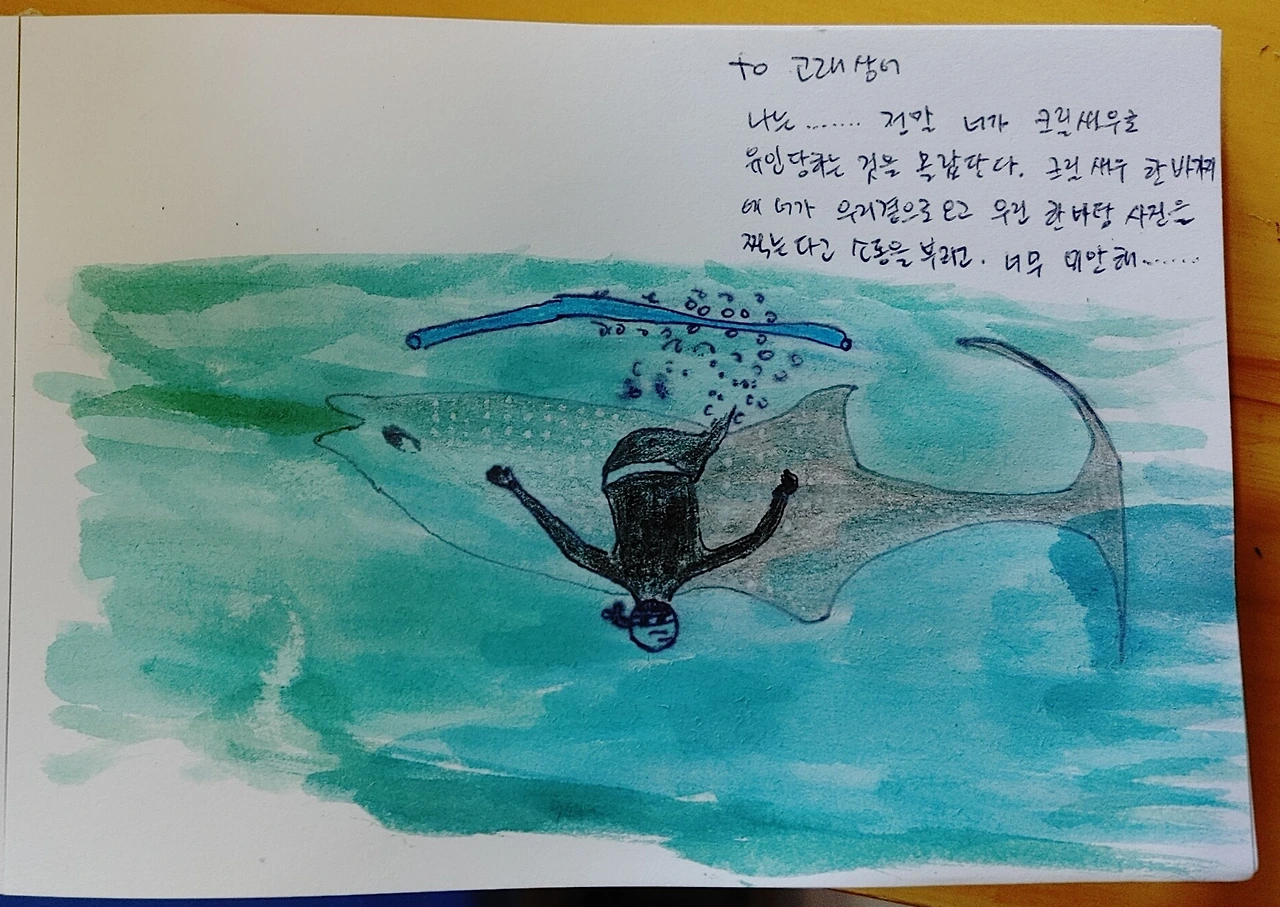 to 고래상어
나는....... 전말 너가 크릴새우로
유인당하는 것을 목격한다. 크릴 새우 한 바가지
에 너가 우리곁으로 오고 우린 한바탕 사진을
찍는다고 소동을 부리고. 너무 미안해.......